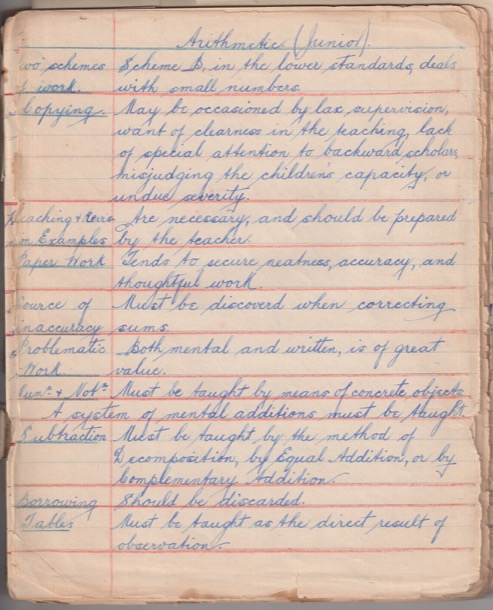 Arithmetic (Junior).
Two schemes Scheme B, in the lower standards, deals
of work. with small numbers.
Copying. May be occasioned by lax supervision,
want of clearness in the teaching, lack
of special attention to backward scholars,
misjudging the children's capacity, or
undue severity.
Teaching & Revis- Are necessary, and should be prepared
ion Examples by the teacher.
Paper Work Tends to secure neatness, accuracy, and
thoughtful work.
Source of Must be discoverd when correcting
inaccuracy sums.
Problematic Both mental and written, is of great
Work. value.
Num.n & Not.n Must be taught by means of concrete objects.
A system of mental additions must be taught.
Subtraction Must be taught by the method of
Decomposition, by Equal Addition, or by
Complementary Addition.
Borrowing Should be discarded.
Tables Must be taught as the direct result of
observation.